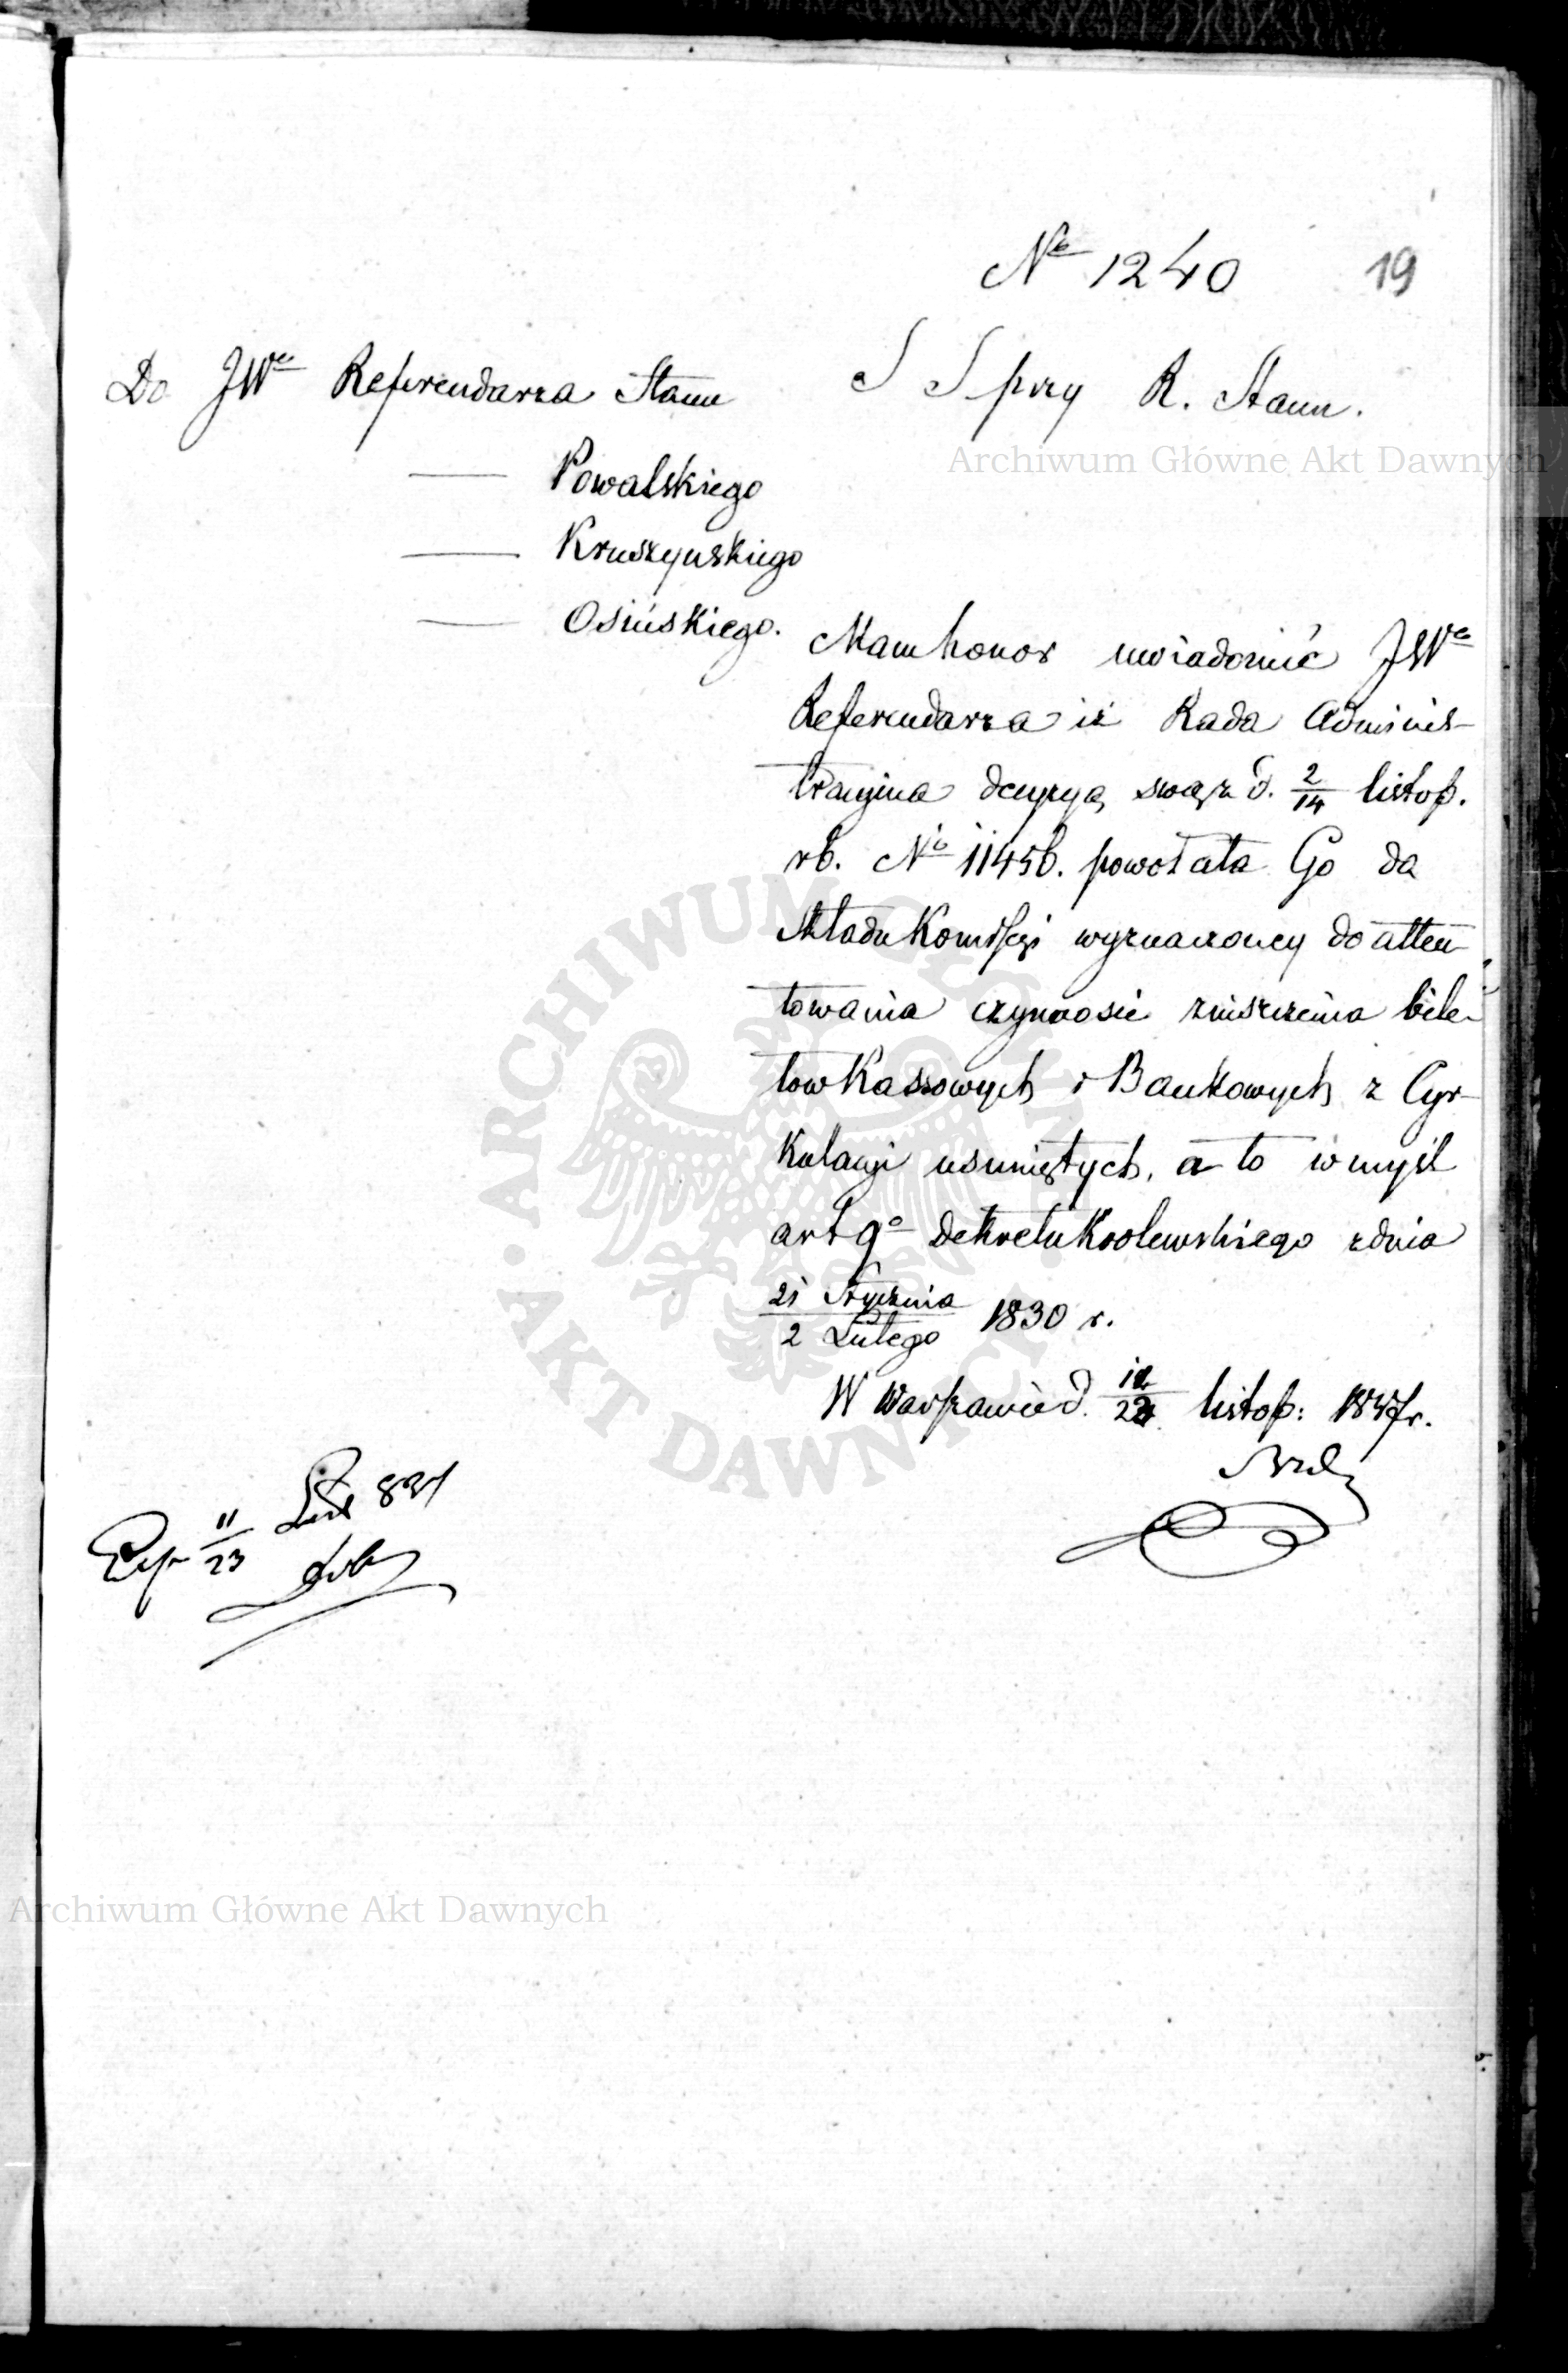 No 1240
19
Do JWo Referendarza Stanu
S S przy R. Stanu.
Powalskiego
Kruszynskiego
Osińskiego.
Mam honor uwiadomić JWo
Referendarza iż Rada Adminis-
tracyjna decyzyą swą z d. 2/14 listop.
rb. No 11456. powołała Go do
składu Komissyi wyznaczoney do atten
towania czynnosci zniszczenia bile-
tow Kassowych i Bankowych z Cyr-
kulacyi usuniętych, a to w myśl
art 9o Dekretu Krolewskiego z dnia
21 Stycznia / 2 Lutego 1830 r.
W Warszawie d. listop: 1847 r.
11/23
Archiwum Główne Akt Dawnych
Archiwum Główne Akt Dawnych
ARCHIWUM GŁÓWNE AKT DAWNYCH